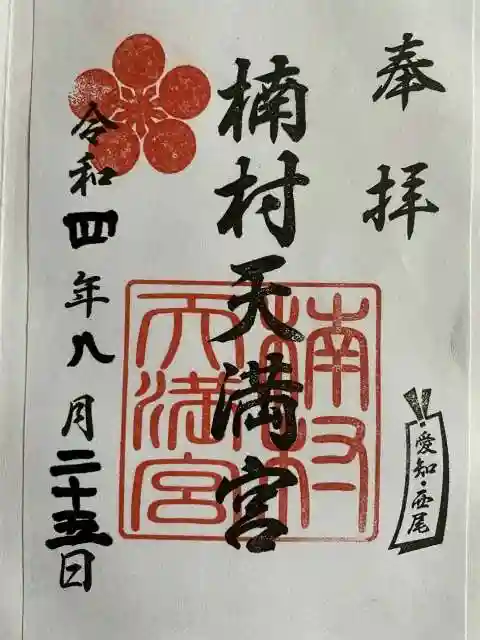 奉拝
愛知・西尾
楠村天満宮
楠村天満宮
令和四年八月二十五日